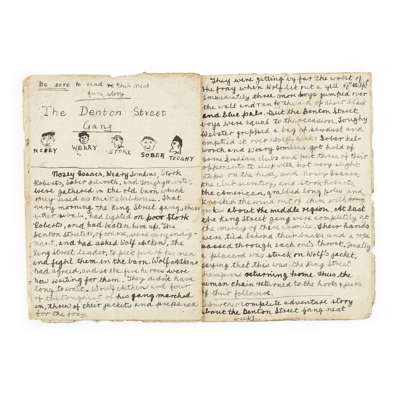 Be sure to read this next
fine story
The Denton Street
Gang
NOSEY WEARY STORK SOBER TOUGHY
Nosey Isaacs, Weary Jenkins, Stork
Roberts, Sober
were gathered in the old barn, which
they used as their clubhouse. That
very morning the King Street gang, their
rivals, had lighted on poor Stork
Roberts, and had beaten him up. The
Denton Streeters, of course, were
and had asked Wolf
King Street leader, to pick five of his men
and fight them in the barn. Wolf
had agreed, and so the five heroes were
now waiting for them. They didn't have
long to wait. Wolf and four
of the toughest of his gang marched
in, threw off their jackets and prepared
for the fray.
They were getting by far the worst of
the fray when Wolf let out a yell of
Immediately three more boys jumped over
the wall and ran to the aid of
and blue pals. But the Denton Street
boys were equal to the occasion. Toughy
Webster grabbed a bag of sawdust and
emptied it over
and Weary Jenkins got hold of
some Indian clubs and put three of their
opponents to sleep with just very slight
taps on the head, and Nosey Isaacs,
the and Stork Roberts,
the American, grabbed long poles and
knocked the wind out of them with some
about the middle region. At last
the King Street gang were completely at
the mercy of their enemies. Their hands
were tied behind their backs and a rope
passed through each one's
a placard was stuck on Wolf's jacket,
saying that this was the King Street
returning home. Thus the
human chain returned to the
of their followers.
Another complete adventure story
about the Denton Street gang next
week.